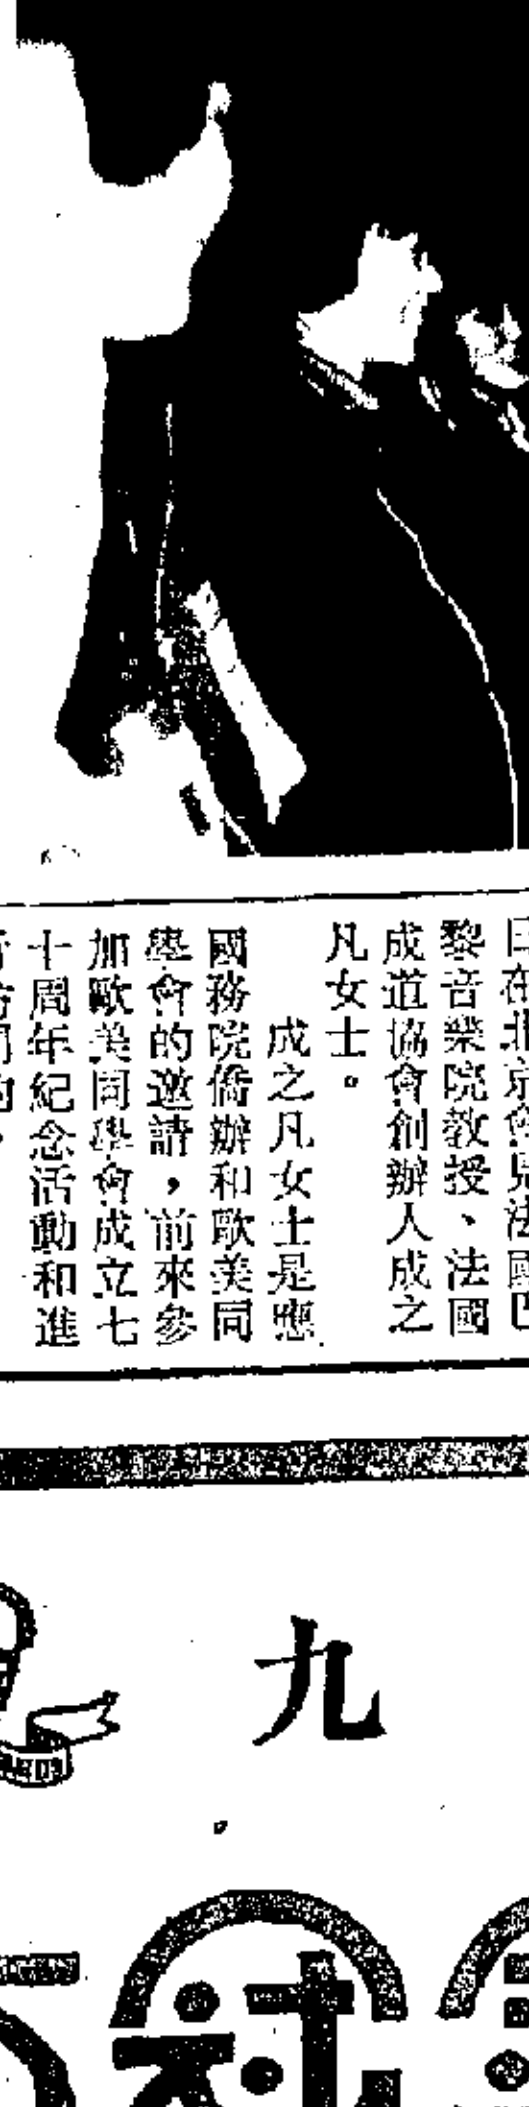 日在北京會見法國巴
黎音樂院教授、法國
成道協會創辦人成之
凡女士。
成之凡女士是應
國務院僑辦和歐美同
學會的邀請，前來參
加歐美同學會成立七
十周年紀念活動和進
九